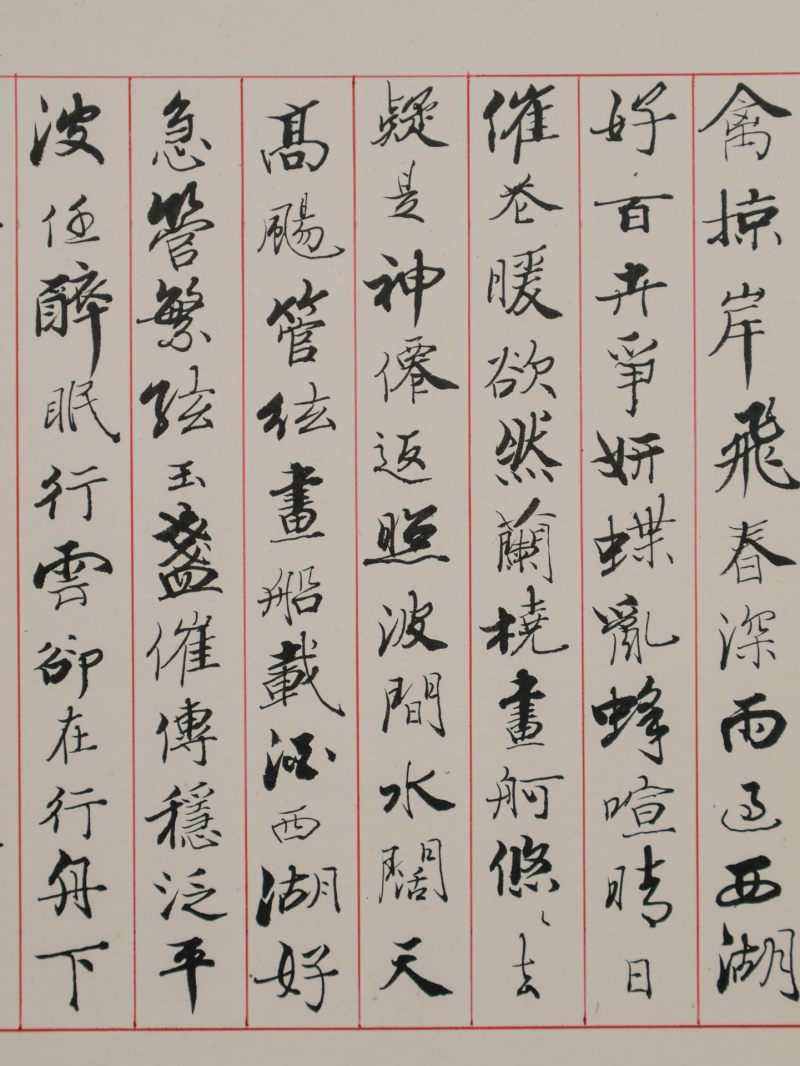 禽掠岸飛春深雨過西湖
好百卉爭妍蝶亂蜂喧晴日
催花暖欲然蘭橈畫舸悠〻去
疑是神僊返照波間水闊天
高颺管絃畫船載酒西湖好
急管繁絃玉盞催傳穩泛平
波任醉眠行雲卻在行舟下